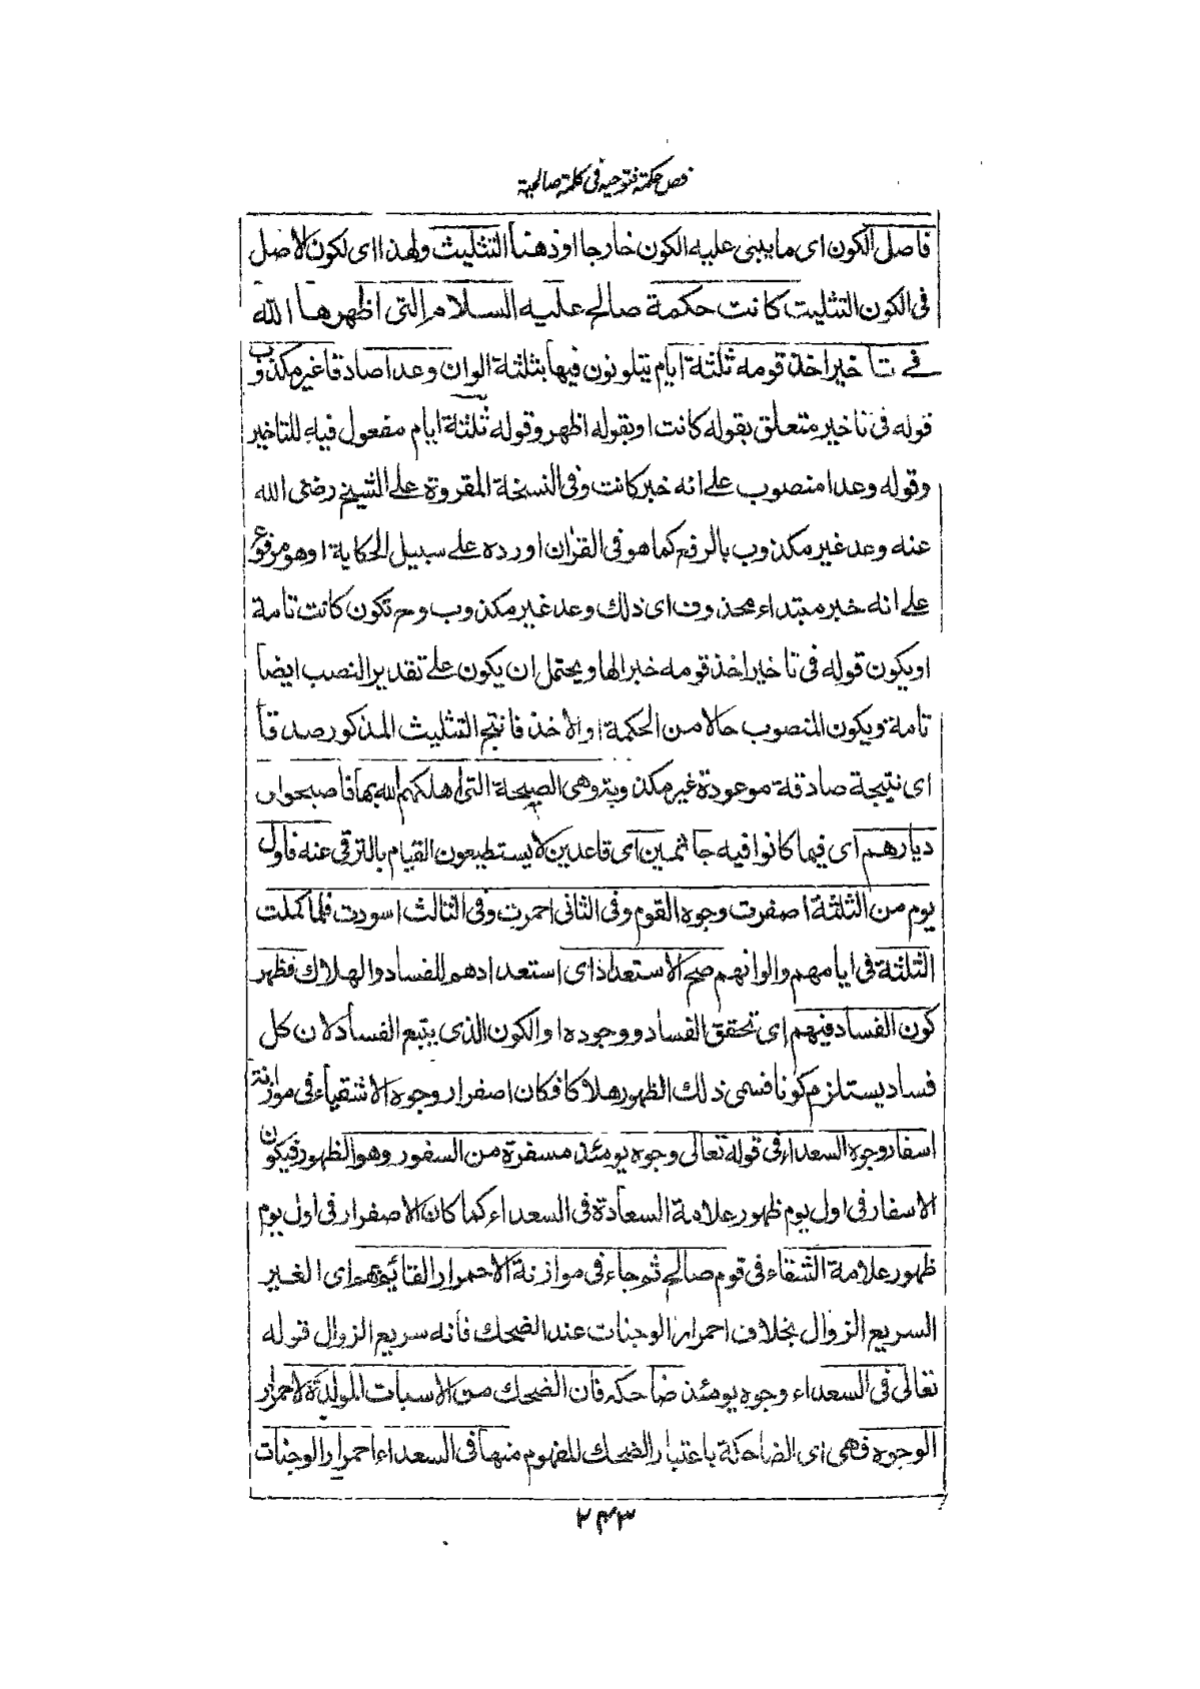 فص حكمة فتوحية فى كلمة صالحية
فاصل الكون اى ما يبنى عليه الكون خارجا او ذهنا التثليث ولهذا اى لكون الاصل
فى الكون التثليث كانت حكمة صالح عليه السلام التى اظهرها الله
فى تأخير اخذ قومه ثلثة ايام يتلونون فيها بثلثة الوان وعدا صادقا غير مكذوب
قوله فى تاخير متعلق بقوله كانت او بقوله اظهر وقوله ثلثة ايام مفعول فيه للتاخير
وقوله وعدا منصوب على انه خبر كانت وفى النسخة المقروة على الشيخ رضى الله
عنه وعد غير مكذوب بالرفع كما هو فى القرآن اورده على سبيل الحكاية او هو مرفوع
على انه خبر مبتداء محذوف اى ذلك وعد غير مكذوب وح تكون كانت تامة
او يكون قوله فى تاخير اخذ قومه خبرالها ويحتمل ان يكون على تقدير النصب ايضا
تامة ويكون المنصوب حالا من الحكمة او الاخذ فانتج التثليث المذكور صدقا
اى نتيجة صادقة موعودة غير مكذوبة وهى الصيحة التى اهلكهم الله بها فاصبحوا فى
ديارهم اى فيما كانوا فيه جاثمين اى قاعدين لا يستطيعون القيام بالترقى عنه فاول
يوم من الثلثة اصفرت وجوه القوم وفى الثانى احمرت وفى الثالث اسودت فلما كملت
الثلثة فى ايامهم والوانهم صح الاستعداد اى استعدادهم للفساد والهلاك فظهر
كون الفساد فيهم اى تحقق الفساد ووجوده او الكون الذى يتبع الفساد لان كل
فساد يستلزم كونا فسمى ذلك الظهور هلاكا فكان اصفرار وجوه الاشقياء فى موازنة
اسفار وجوه السعداء فى قوله تعالى وجوه يومئذ مسفرة من السفور وهو الظهور فيكون
الاسفار فى اول يوم ظهور علامة السعادة فى السعداء كما كان الاصفرار فى اول يوم
ظهور علامة الشقاء فى قوم صالح ثم جاء فى موازنة الاحمرار القائم بهم اى الغير
السريع الزوال بخلاف احمرار الوجنات عند الضحك فانه سريع الزوال قوله
تعالى فى السعداء وجوه يومئذ ضاحكه فان الضحك من الاسباب المولدة لاحمرار
الوجوه فهى اى الضاحكة باعتبار الضحك المفهوم منها فى السعداء احمرار الوجنات
۲۴۳